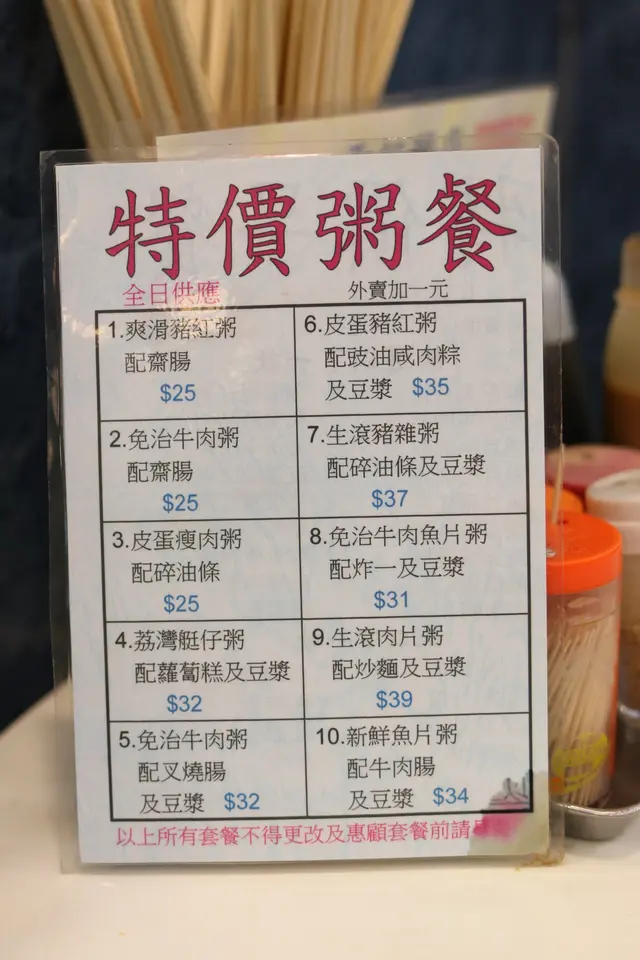 特價粥餐
全日供應
外賣加一元
1.爽滑豬紅粥
配齋腸
$25
2.免治牛肉粥
配齋腸
$25
3.皮蛋瘦肉粥
配碎油條
$25
4.荔灣艇仔粥
配蘿蔔糕及豆漿
$32
5.免治牛肉粥
配叉燒腸
及豆漿 $32
6.皮蛋豬紅粥
配豉油咸肉粽
及豆漿 $35
7.生滾豬雜粥
配碎油條及豆漿
$37
8.免治牛肉魚片粥
配炸一及豆漿
$31
9.生滾肉片粥
配炒麵及豆漿
$39
10.新鮮魚片粥
配牛肉腸
及豆漿 $34
以上所有套餐不得更改及惠顧套餐前請